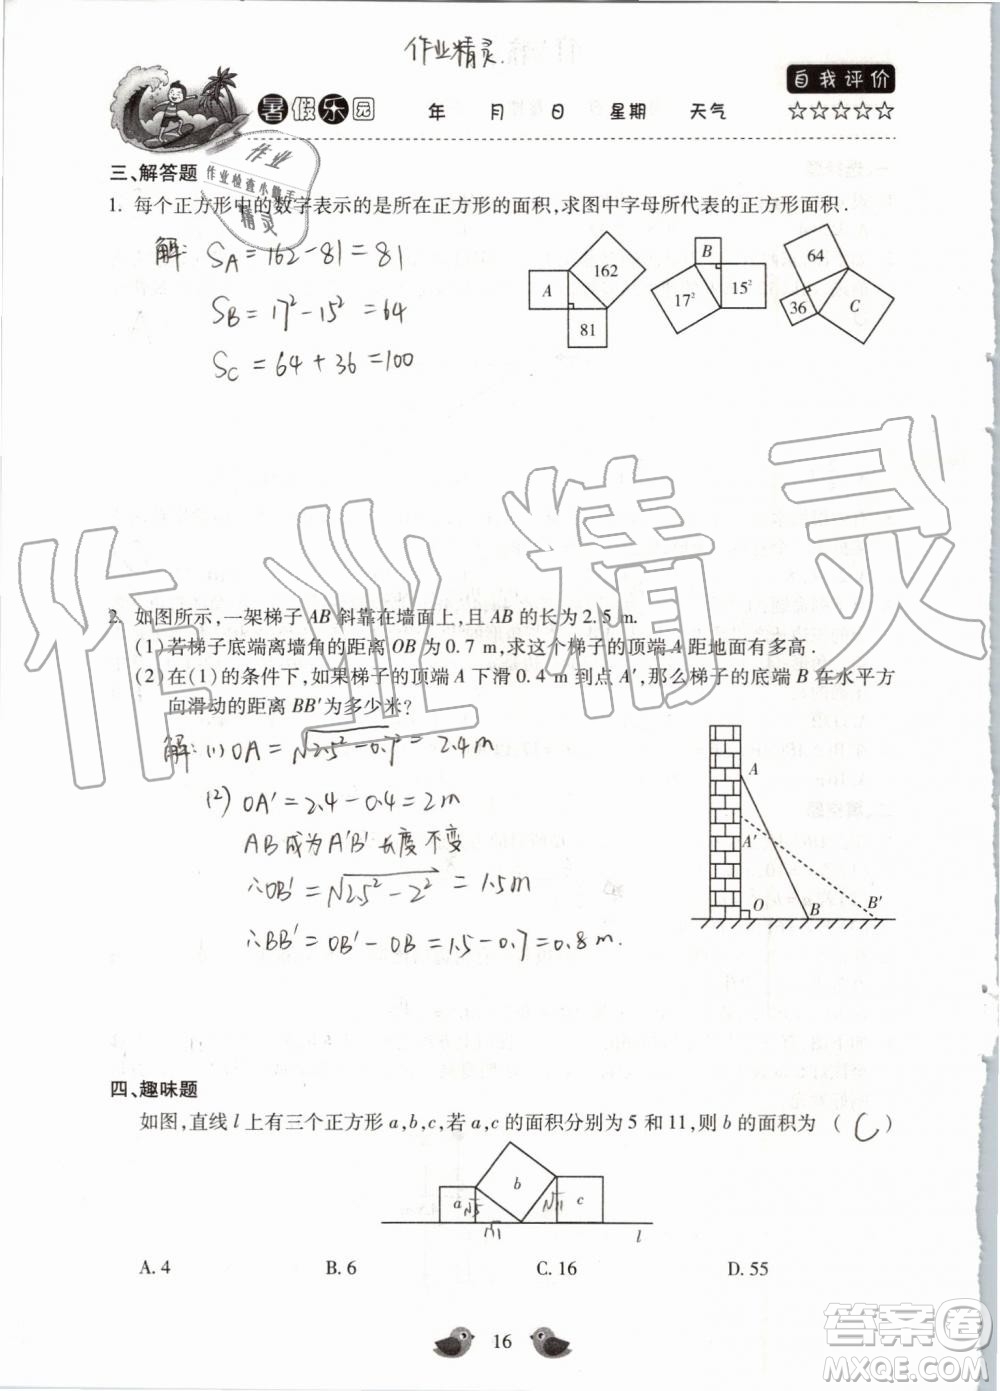 作业精灵.
自我评价
暑假乐园 年 月 日 星期 天气 ☆☆☆☆☆
作业
作业检查小帮手
精灵
三、解答题
1. 每个正方形中的数字表示的是所在正方形的面积,求图中字母所代表的正方形面积.
解: S_A=162-81=81
S_B=17²-15²=64
S_C=64+36=100
A 162 81
B 17² 15²
64 36 C
作业精灵
2. 如图所示,一架梯子 AB 斜靠在墙面上,且 AB 的长为 2.5 m.
(1)若梯子底端离墙角的距离 OB 为 0.7 m,求这个梯子的顶端 A 距地面有多高.
(2)在(1)的条件下,如果梯子的顶端 A 下滑 0.4 m 到点 A′,那么梯子的底端 B 在水平方
向滑动的距离 BB′为多少米?
解: (1) OA=√2.5²-0.7²=2.4m
(2) OA′=2.4-0.4=2m
AB成为A′B′长度不变
∴OB′=√2.5²-2²=1.5m
∴BB′=OB′-OB=1.5-0.7=0.8m.
A
A′
O B B′
四、趣味题
如图,直线 l 上有三个正方形 a,b,c,若 a,c 的面积分别为 5 和 11,则 b 的面积为 ( C )
a √5 b √11 c
√11 l
A. 4 B. 6 C. 16 D. 55
16
答案圈
MXQE.COM